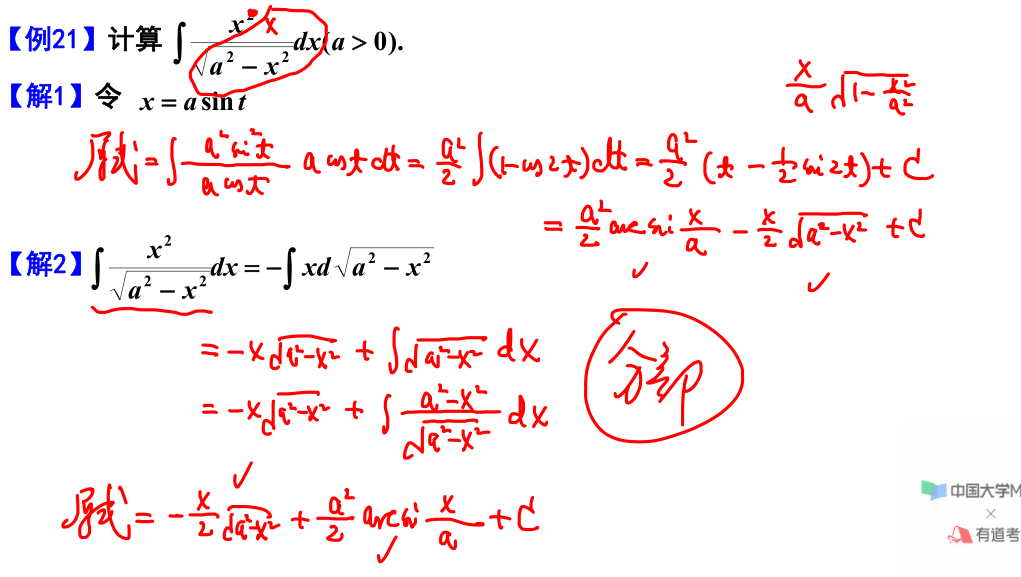 【例21】计算 ∫ x² x / √(a² − x²) dx (a > 0).
x/a √(1 − x²/a²)
【解1】令 x = a sin t
原式 = ∫ a² sin² t / (a cos t) a cos t dt = a²/2 ∫(1 − cos 2t) dt = a²/2 (t − 1/2 sin 2t) + C
= a²/2 arcsin x/a − x/2 √(a² − x²) + C
【解2】∫ x² / √(a² − x²) dx = −∫ x d √(a² − x²)
= −x √(a² − x²) + ∫ √(a² − x²) dx
分部
= −x √(a² − x²) + ∫ (a² − x²) / √(a² − x²) dx
原式 = −x/2 √(a² − x²) + a²/2 arcsin x/a + C
中国大学M
×
有道考